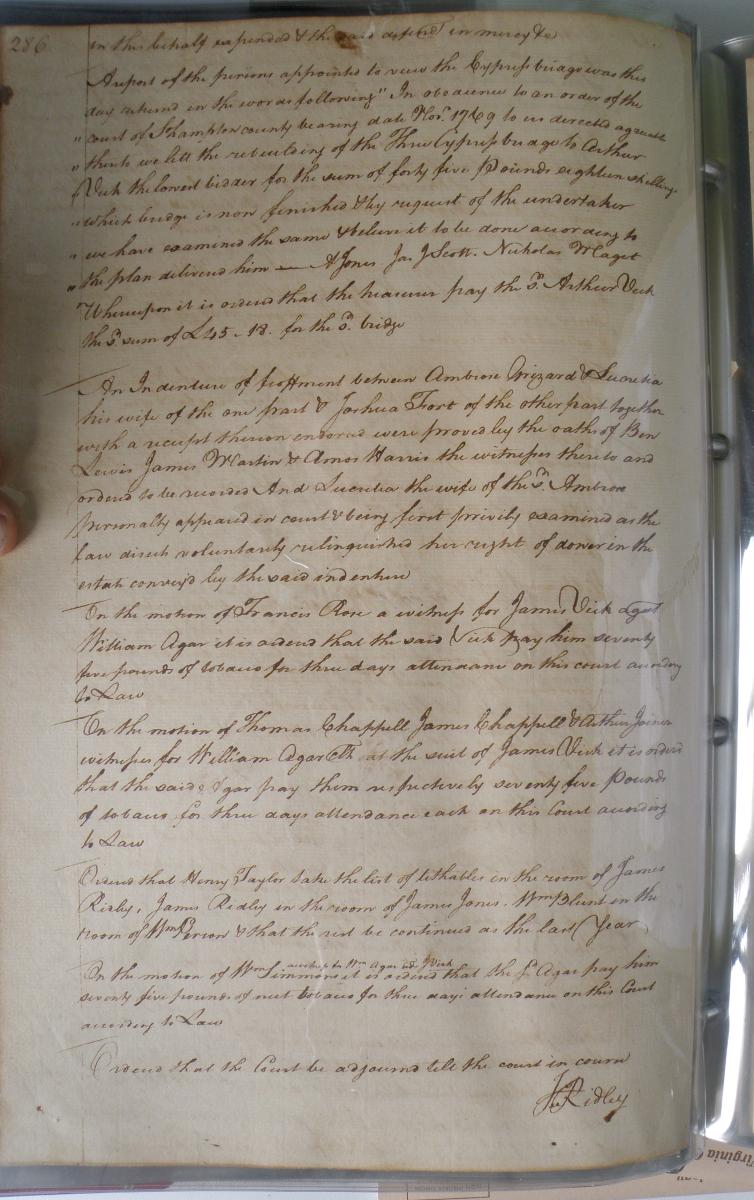 286
in this behalf expended & the said defend.t in mercy &c
A report of the persons appointed to view the Cypress bridge was this
day returned in the words following " In obedience to an order of the
" court of Shampton county bearing date Nov.r 1769 to us directed
" we lett the rebuilding of the Three Cypress bridge to Arthur
Vick the lowest bidder for the sum of forty five pounds eighteen shillings
" which bridge is now finished & by request of the undertaker
" we have examined the same & believe it to be done according to
" the plan delivered him — A Jones Ja.s J Scott. Nicholas Maget
" Whereupon it is ordered that the treasurer pay the s.d Arthur Vick
the s.d sum of £45-18. for the s.d bridge
An Indenture of feoffment between Ambrose Grizard & Lucretia
his wife of the one part & Joshua Fort of the other part together
with a receipt thereon endorsed were proved by the oaths of Ben
Lewis James Martin & Amos Harris the witnesses thereto and
ordered to be recorded And Lucretia the wife of the s.d Ambrose
personally appeared in court & being first privily examined as the
Law directs voluntarily relinquished her right of dower in the
estate convey'd by the said indenture
On the motion of Francis Rose a witness for James Vick ag.st
William Agar it is ordered that the said Vick pay him seventy
five pounds of tobacco for three days attendance on this court according
to Law
On the motion of Thomas Chappell James Chappell & Arthur Joiner
witnesses for William Agar at the suit of James Vick it is ordered
that the said Agar pay them respectively seventy five Pounds
of tobacco for three days attendance each on this Court according
to Law
Ordered that Henry Taylor take the list of tithables in the room of James
Ridley, James Ridley in the room of James Jones. Wm Blunt in the
room of Wm Person & that the rest be continued as the last Year
a witness for Wm Agar ads Vick
On the motion of Wm Simmons it is ordered that the s.d Agar pay him
seventy five pounds of nett tobacco for three days attendance on this Court
according to Law
Ordered that the Court be adjourned till the court in course
Ja Ridley
Virginia